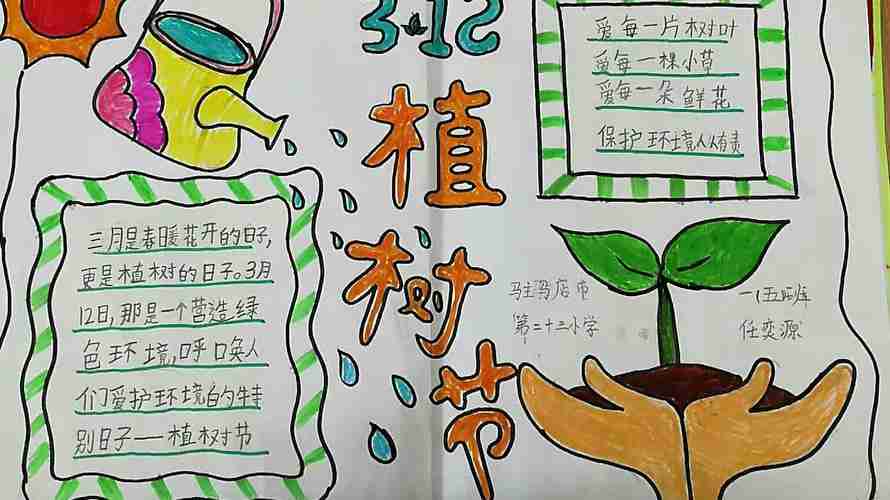 3.12
植树节
爱每一片树叶
爱每一棵小草
爱每一朵鲜花
保护环境人人有责
三月是春暖花开的日子,
更是植树的日子。3月
12日,那是一个营造绿
色环境,呼唤人
们爱护环境的特
别日子——植树节
驻马店市
第二十三小学
一(五)班
任奕源